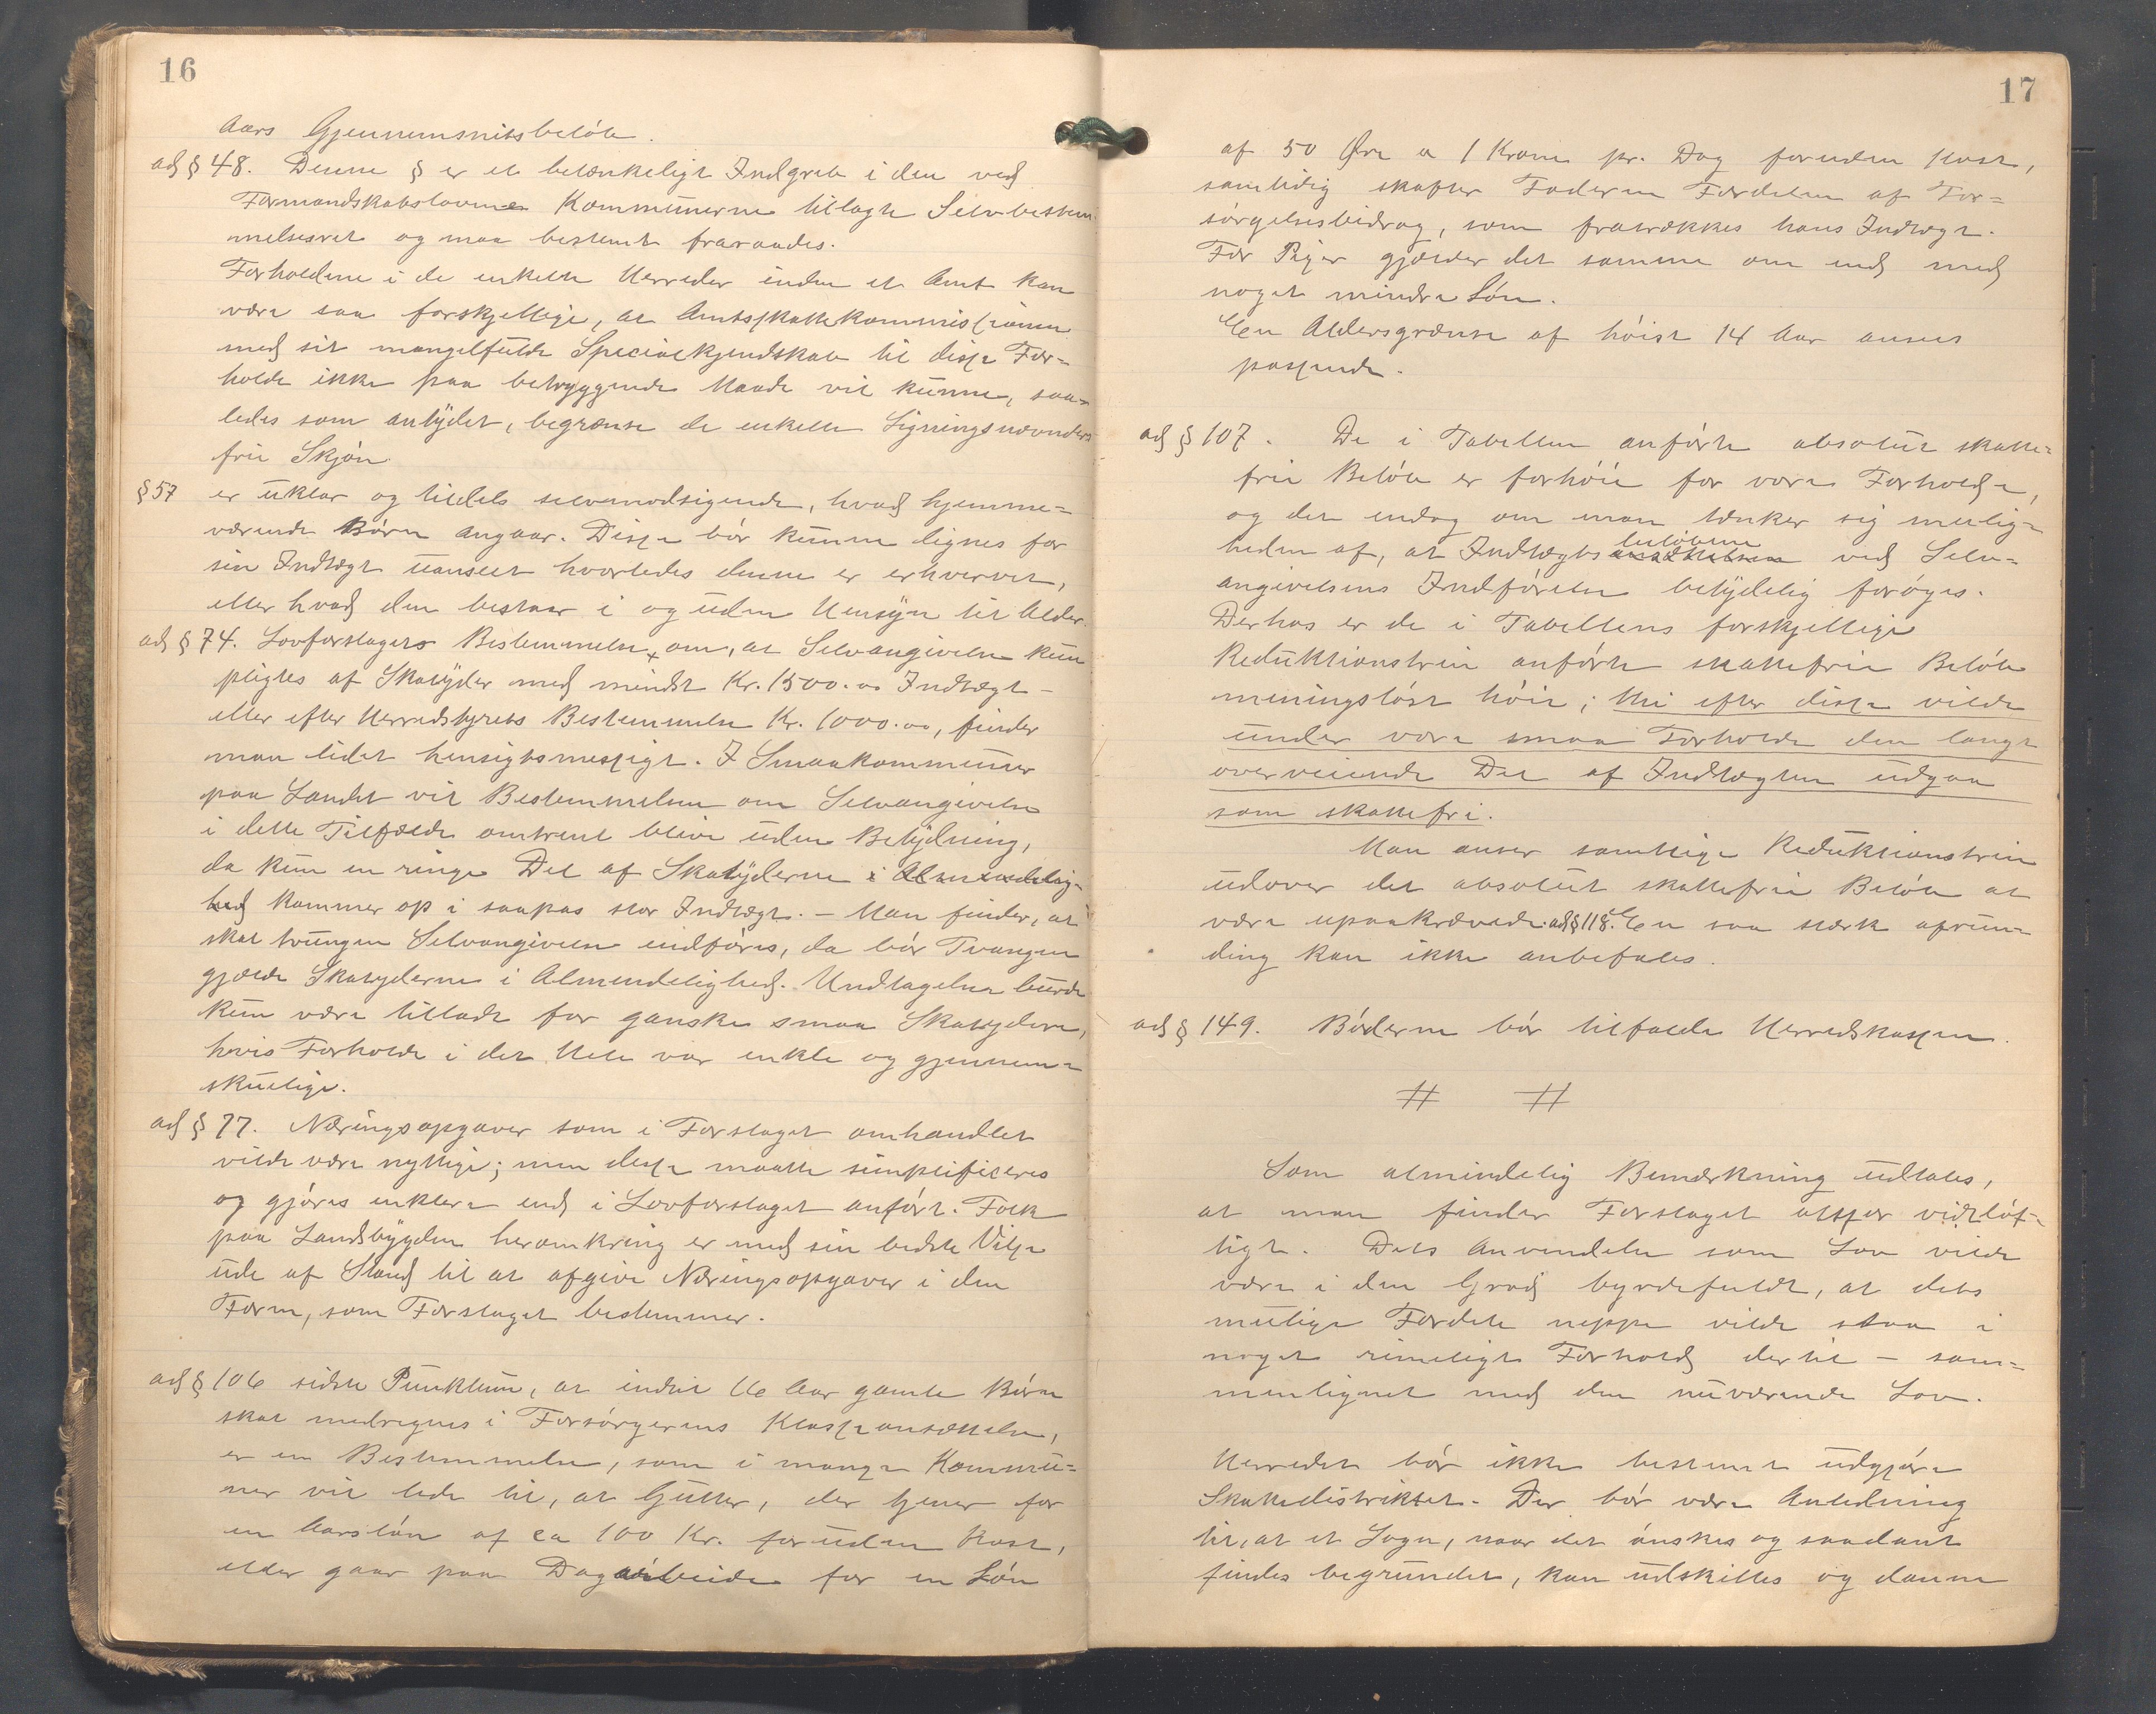 16
Aars Gjennemsnitsbeløb.
ad § 48. Denne § er et betænkeligt Indgreb i den ved
Formandskabslovene Kommunerne tillagte Selvbestem-
melsesret og maa bestemt fraraades.
Forholdene i de enkelte Herreder inden et Amt kan
være saa forskjellige, at Amtsskattekommissionen
med sit mangelfulde Specialkjendskab til disse For=
holde ikke paa betryggende Maade vil kunne, saa=
ledes som antydet, begrænse de enkelte Ligningsnævnders
frie Skjøn
§ 57 er uklar og tildels selvmodsigende, hvad hjemme=
værende Børn angaar. Disse bør kunne lignes for
sin Indtægt uanseet hvorledes denne er erhvervet,
eller hvad den bestaar i og uden Hensyn til Alder.
ad § 74. Lovforslagets Bestemmelse om, at Selvangivelse kun
pligtes af Skatyder med mindst Kr. 1500.00 Indtægt -
eller efter Herredstyrets Bestemmelse Kr. 1000.00, finder
man lidet hensigtsmessigt. I Smaakommuner
paa Landet vil Bestemmelsen om Selvangivelse
i dette Tilfælde omtrent blive uden Betydning,
da kun en ringe Del af Skatyderne i Almindelig-
hed kommer op i saapas stor Indtægt. - Man finder, at
skal tvungen Selvangivelse indføres, da bør Tvangen
gjælde Skatyderne i Almendelighed. Undtagelse burde
kun være tilladt for ganske smaa Skatydere,
hvis Forholde i det Hele var enkle og gjennem=
skuelige.
ad § 77. Næringsopgaver som i Forslaget omhandlet
vilde være nyttige; men disse maatte simplificeres
og gjøres enklere end i Lovforslaget anført. Folk
paa Landsbygden heromkring er med sin bedste Vilje
ude af Stand til at afgive Næringsopgaver i den
Form, som Forslaget bestemmer.
ad § 106 sidste Punktum, at indtil 16 Aar gamle Børn
skal medregnes i Forsørgerens Klasseansættelse,
er en Bestemmelse, som i mange Kommu=
ner vil lede til, at Gutter, der tjener for
en Aarsløn af ca 100 Kr. foruden Kost,
eller gaar paa Dagarbeide for en Løn
17
af 50 Øre a 1 Krone pr. Dag foruden Kost,
samtidig skaffer Faderen Fordelen af For=
sørgelsesbidrag, som fratrækkes hans Indtægt.
For Piger gjælder det samme om end med
noget mindre Løn.
En Aldersgrænse af høist 14 Aar ansees
passende.
ad § 107. De i Tabellen anførte absolut skatte=
frie Beløb er forhøie for vore Forholde,
og det endog om man tænker sig mulig=
heden af, at Indtægtsbeløbene ved Selv=
angivelsens Indførelse betydelig forøges.
Derhos er de i Tabellens forskjellige
Reduktionstrin anførte skattefrie Beløb
meningsløst høie; thi efter disse vilde
under vore smaa Forholde den langt
overveiende Del af Indtægten udgaa
som skattefri.
Man anser samtlige Reduktionstrin
udover det absolut skattefrie Beløb at
være upaakrævede. ad § 118. En saa stærk afrun=
ding kan ikke anbefales.
ad § 149. Bøderne bør tilfalde Herredskassen.
# #
Som almindelig Bemærkning udtales,
at man finder Forslaget altfor vidtløf-
tigt. Dets Anvendelse som Lov vilde
være i den Grad byrdefuldt, at dets
mulige Fordele neppe vilde staa i
noget rimeligt Forhold dertil - sam=
menlignet med den nuværende Lov.
Herredet bør ikke bestemt udgjøre
Skattedistriktet. Der bør være Anledning
til, at et Sogn, naar det ønskes og saadant
findes begrundet, kan udskilles og danne